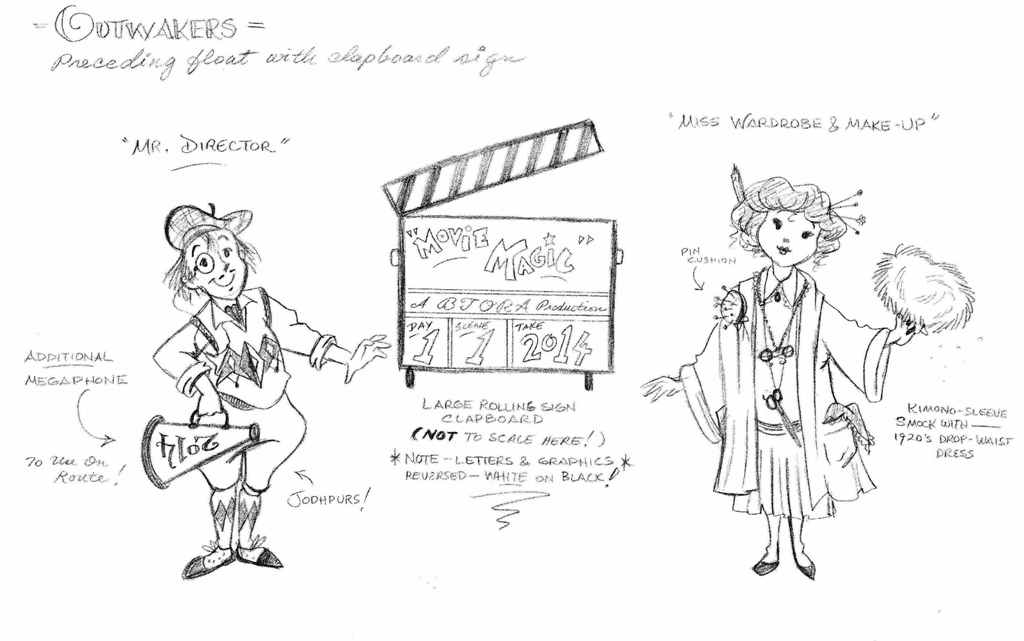 = OUTWAKERS =
Preceding float with clapboard sign
"MR. DIRECTOR"
"MISS WARDROBE & MAKE-UP"
"MOVIE MAGIC"
A BTORA Production
DAY 1 SCENE 1 TAKE 2014
PIN CUSHION
ADDITIONAL
MEGAPHONE
2014
To Use On
Route!
JODHPURS!
LARGE ROLLING SIGN
CLAPBOARD
(NOT TO SCALE HERE!)
*NOTE - LETTERS & GRAPHICS *
REVERSED - WHITE ON BLACK!
KIMONO-SLEEVE
SMOCK WITH
1920'S DROP-WAIST
DRESS